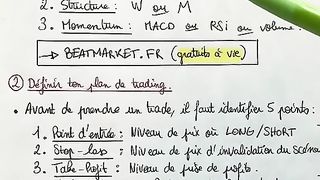 2. Structure : W ou M
3. Momentum : MACD ou RSi ou volume.
→ BEATMARKET.FR (gratuits à vie)
② Définir ton plan de trading.
• Avant de prendre un trade, il faut identifier 5 points :
1. Point d'entrée : Niveau de prix où LONG/SHORT
2. Stop-loss : Niveau de prix d'invalidation du scéna
3. Take-Profit : Niveau de prise de profits.